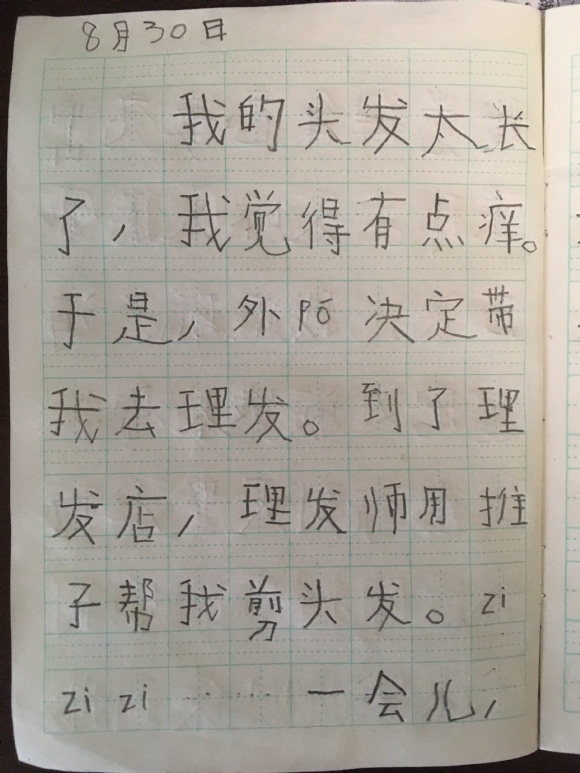 8月30日
我的头发太长
了，我觉得有点痒。
于是，外po决定带
我去理发。到了理
发店，理发师用推
子帮我剪头发。zi
zi zi……一会儿，